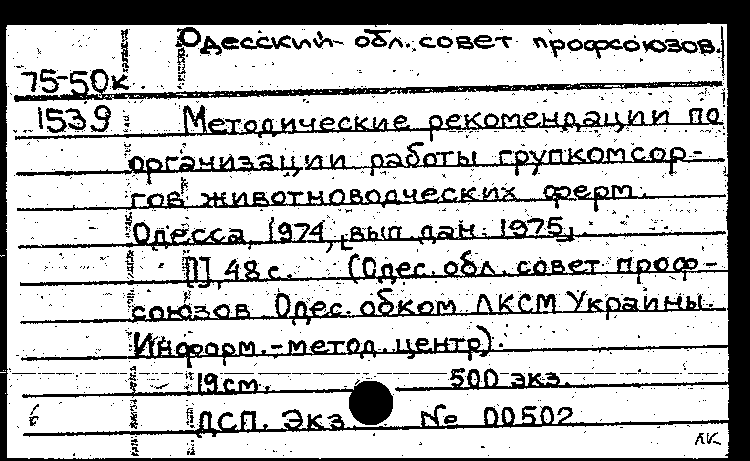 Одесский обл. совет профсоюзов.
75-50к
1539 Методические рекомендации по
организации работы групкомсор-
гов животноводческих ферм.
Одесса, 1974, [вып. дан. 1975].
[1], 48 с. (Одес. обл. совет проф-
союзов. Одес. обком ЛКСМ Украины.
Информ.-метод. центр).
19 см. 500 экз.
б ДСП. Экз № 00502
ЛК